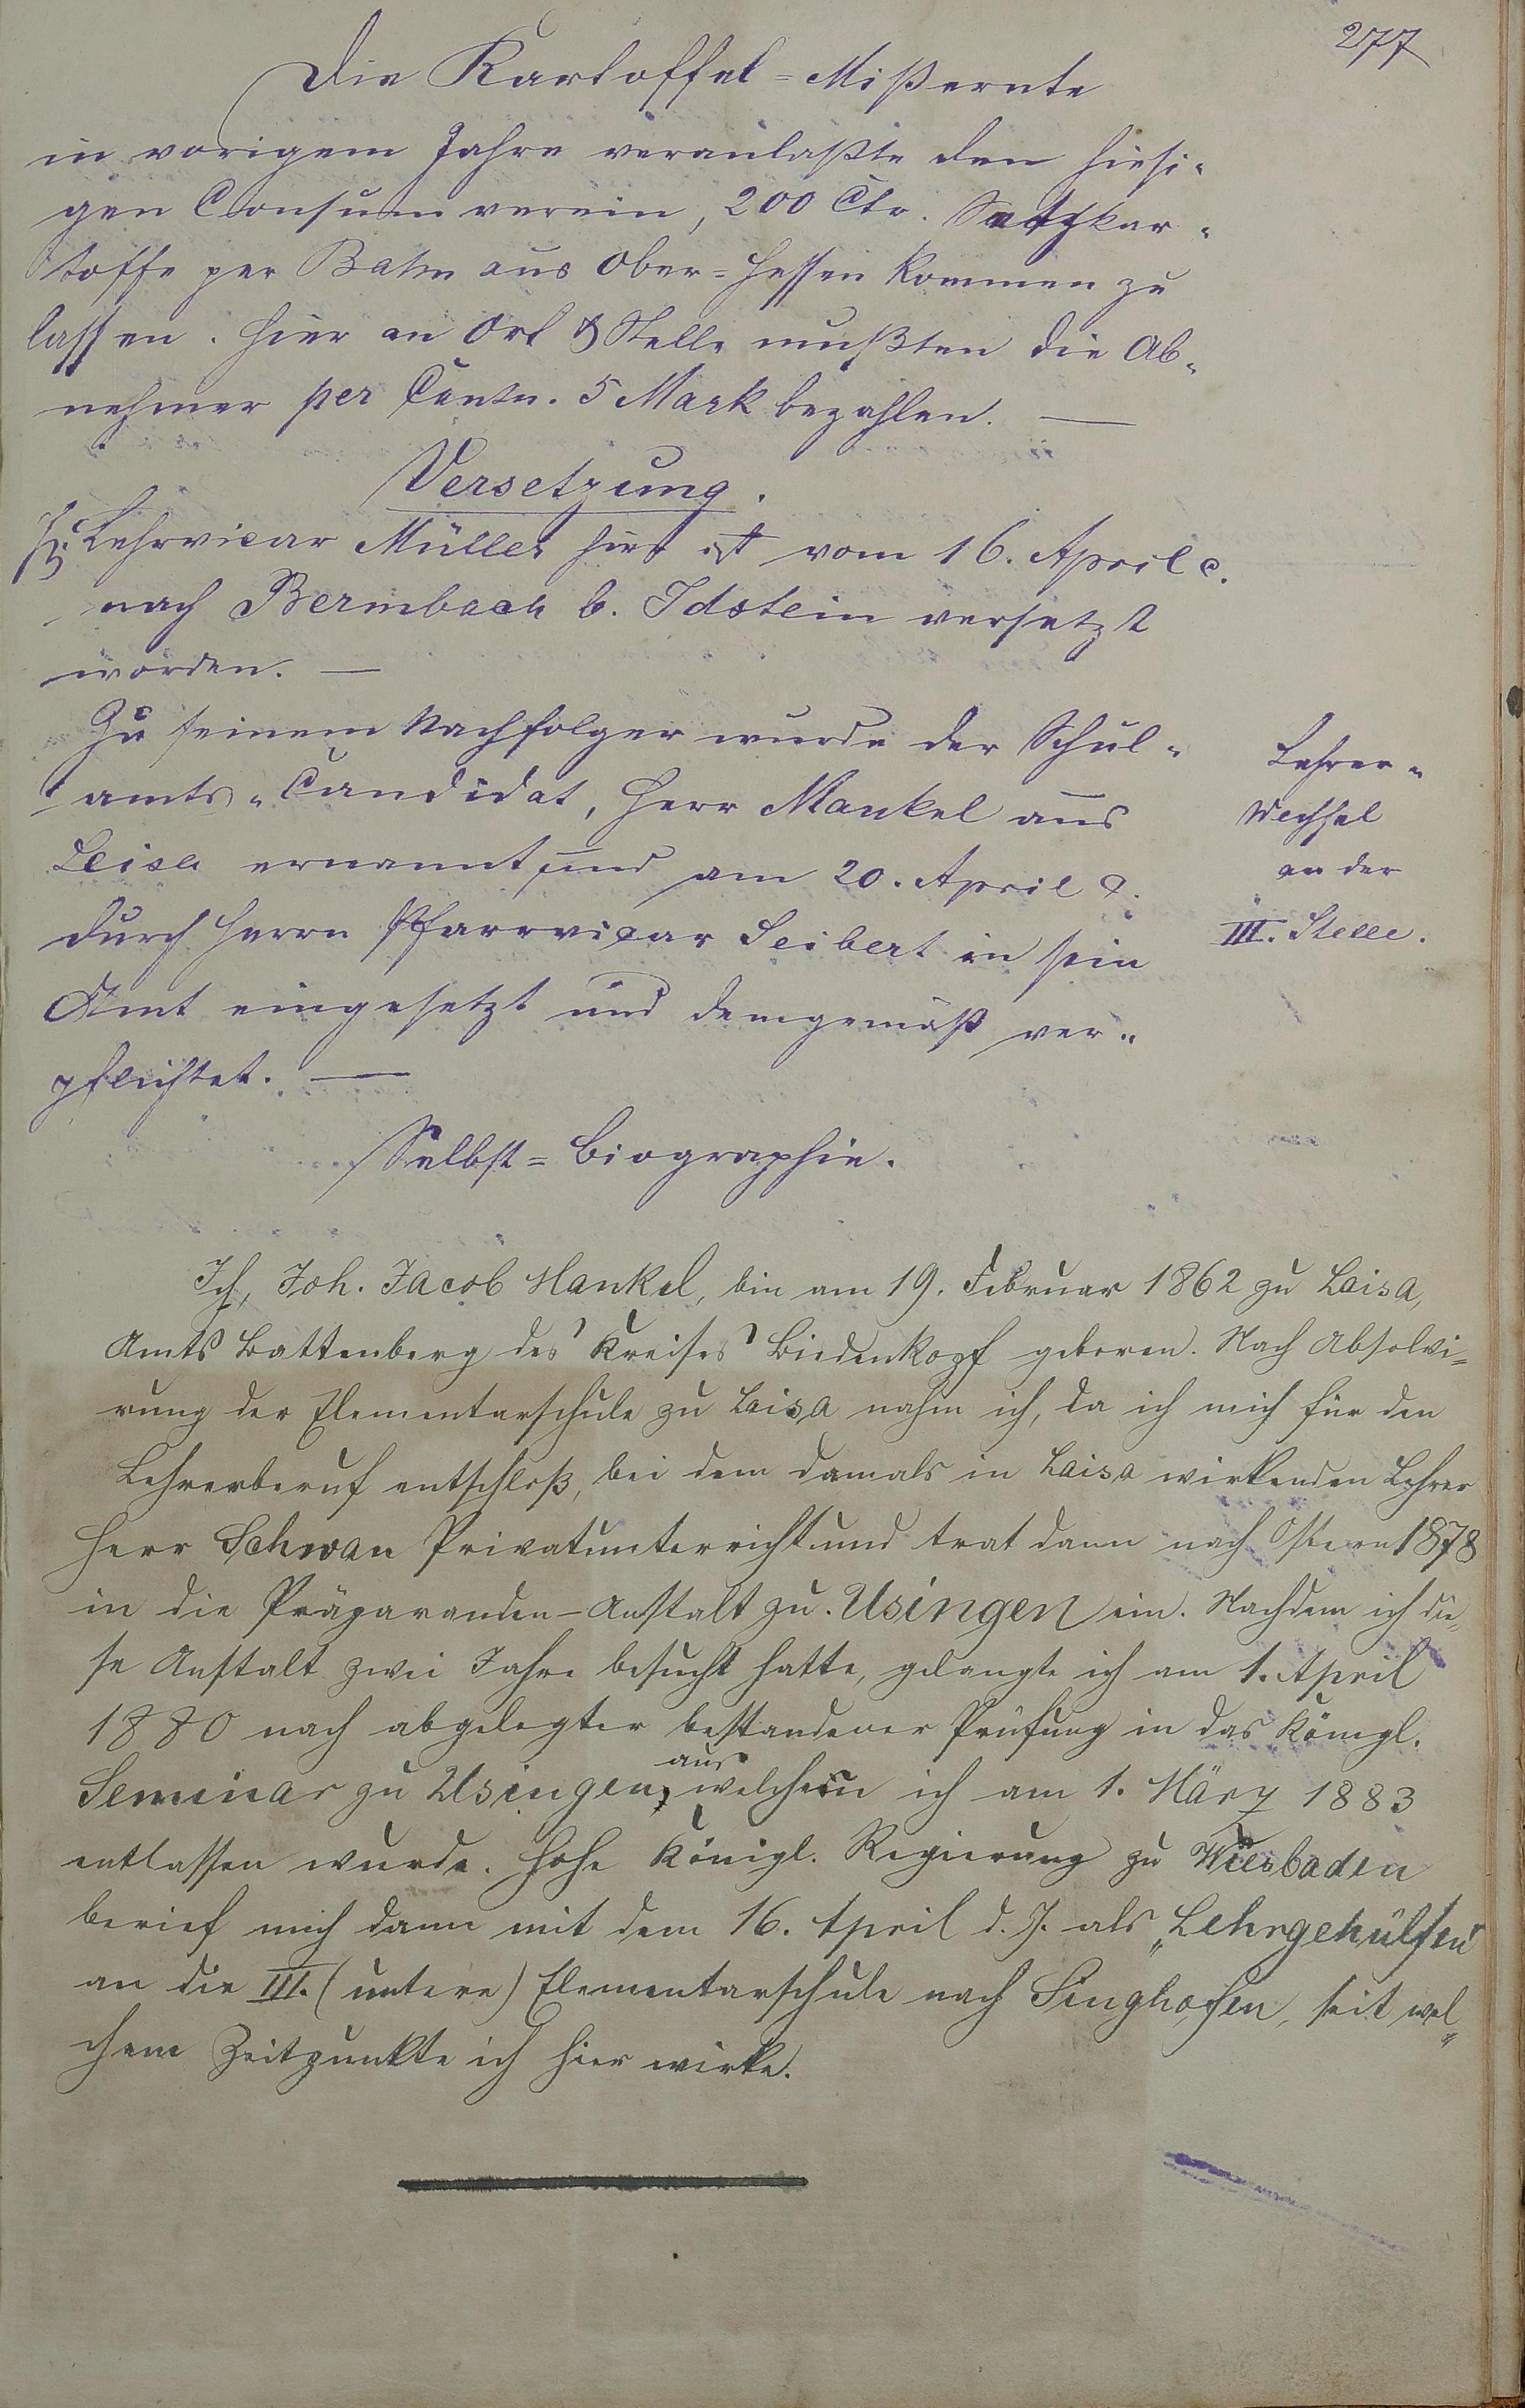 277
Die Kartoffel=Mißernte
in vorigem Jahre veranlaßte den hiesi-
gen Consumverein, 200 Ctr. Setzkar-
toffe per Bahn aus Ober=Hessen kommen zu
lassen. Hier an Ort & Stelle mußten die Ab-
nehmer per Centn. 5 Mark bezahlen. —
Versetzung.
Lehrvicar Müller hier ist vom 16. April c.
nach Bermbach b. Idstein versetzt
worden. —
Zu seinem Nachfolger wurde der Schul-
amts-Candidat, Herr Mankel aus
Leisa ernannt und am 20. April c.
durch Herrn Pfarrvicar Seibert in sein
Amt eingesetzt und demgemäß ver-
pflichtet. —
Lehrer-
Wechsel
an der
III. Stelle.
Selbst=Biographie.
Ich, Joh. Jacob Mankel, bin am 19. Februar 1862 zu Laisa,
Amts Battenberg des Kreises Biedenkopf geboren. Nach Absolvi=
rung der Elementarschule zu Laisa nahm ich, da ich mich für den
Lehrerberuf entschloß, bei dem damals in Laisa wirkenden Lehrer
Herr Schwan Privatunterricht und trat dann nach Ostern 1878
in die Präparanden-Anstalt zu Usingen ein. Nachdem ich die-
se Anstalt zwei Jahre besucht hatte, gelangte ich am 1. April
1880 nach abgelegter bestandener Prüfung in das Königl.
Seminar zu Usingen, aus welchem ich am 1. März 1883
entlassen wurde. Hohe Königl. Regierung zu Wiesbaden
berief mich dann mit dem 16. April d. J. als „Lehrgehülfen"
an die III. (untere) Elementarschule nach Singhofen, seit wel-
chem Zeitpunkte ich hier wirke.